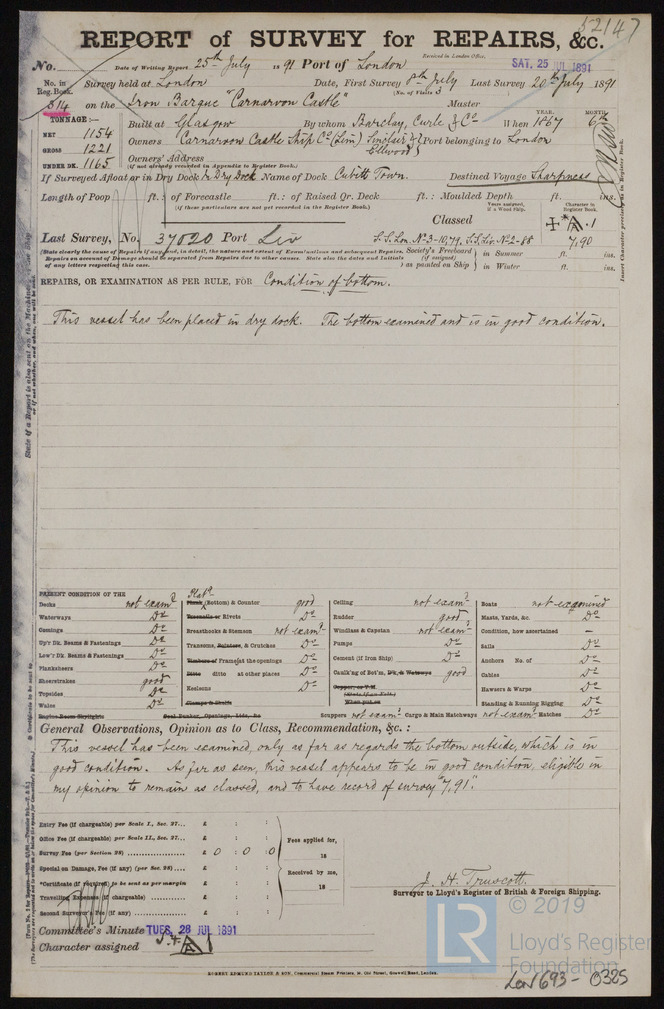 52147
REPORT of SURVEY for REPAIRS, &c.
No. Date of Writing Report 25th July 1891 Port of London Received in London Office, SAT, 25 JUL 1891
No. in Reg. Book. Survey held at London Date, First Survey 8th July Last Survey 20th July 1891
(No. of Visits 3
314 on the Iron Barque "Carnarvon Castle" Master
TONNAGE:— YEAR. MONTH.
NET 1154 Built at Glasgow By whom Barclay, Curle & Co When 1867 6
GROSS 1221 Owners Carnarvon Castle Ship Co (Lim) Sinclair & Ellwood Port belonging to London
UNDER DK. 1165 Owners' Address
(if not already recorded in Appendix to Register Book.)
If Surveyed Afloat or in Dry Dock In Dry Dock Name of Dock Cubitt Town. Destined Voyage Sharpness
Length of Poop ft.: of Forecastle ft.: of Raised Qr. Deck ft.: Moulded Depth ft. ins.
(if these particulars are not yet recorded in the Register Book.)
Years assigned, if a Wood Ship. Character in Register Book.
Classed A.1
Last Survey, No. 37020 Port Liv S.S. Lon. No 3-10,79, S.S. Liv. No 2-88 7,90
(State clearly the cause of Repairs if any, and, in detail, the nature and extent of Examinations and subsequent Repairs. Society's Freeboard in Summer ft. ins.
Repairs on account of Damage should be separated from Repairs due to other causes. State also the dates and Initials (if assigned)
of any letters respecting this case.) as painted on Ship in Winter ft. ins.
REPAIRS, OR EXAMINATION AS PER RULE, FOR Condition of bottom.
This vessel has been placed in dry dock. The bottom examined and is in good condition.
PRESENT CONDITION OF THE
Decks not examd
Waterways Do
Comings Do
Up'r Dk. Beams & Fastenings Do
Low'r Dk. Beams & Fastenings Do
Planksheers Do
Sheerstrakes good
Topsides Do
Wales Do
Engine Room Skylights
Plank (Bottom) & Counter good
Treenails or Rivets Do
Breasthooks & Stemson not examd
Transoms, Pointers, & Crutches Do
Timbers of Frame at the openings Do
Ditto ditto at other places Do
Keelsons Do
Clamps & Shelfs
Coal Bunker, Openings, Lids, &c
Ceiling not examd
Rudder good
Windlass & Capstan not examd
Pumps Do
Cement (if Iron Ship) Do
Caulk'ng of Bot'm, Dk. & Waterways good
Copper, or Y.M.
(State if on Felt)
When put on
Scuppers not examd Cargo & Main Hatchways not examd Hatches Do
Boats not examined
Masts, Yards, &c. Do
Condition, how ascertained —
Sails Do
Anchors No. of Do
Cables Do
Hawsers & Warps Do
Standing & Running Rigging Do
General Observations, Opinion as to Class, Recommendation, &c.:
This vessel has been examined, only as far as regards the bottom outside, which is in
good condition. As far as seen, this vessel appears to be in good condition, eligible in
my opinion to remain as classed, and to have record of survey "7,91".
Entry Fee (if chargeable) per Scale I., Sec. 27... £ : :
Office Fee (if chargeable) per Scale II., Sec. 27... £ : :
Survey Fee (per Section 28) £ 0 : 0 : 0
Special on Damage, Fee (if any) (per Sec. 28)... £ : :
*Certificate (if required) to be sent as per margin
Travelling Expenses (if chargeable) £ : :
Second Surveyor's Fee (if any) £ : :
Fees applied for,
18
Received by me,
18
J. H. Truscott.
Surveyor to Lloyd's Register of British & Foreign Shipping.
Committee's Minute TUES, 28 JUL 1891
Character assigned A 1
ROBERT EDMUND TAYLOR & SON, Commercial Steam Printers, 19, Old Street, Goswell Road, London.
LR
© 2019
Lloyd's Register
Foundation
Lon 693-0325